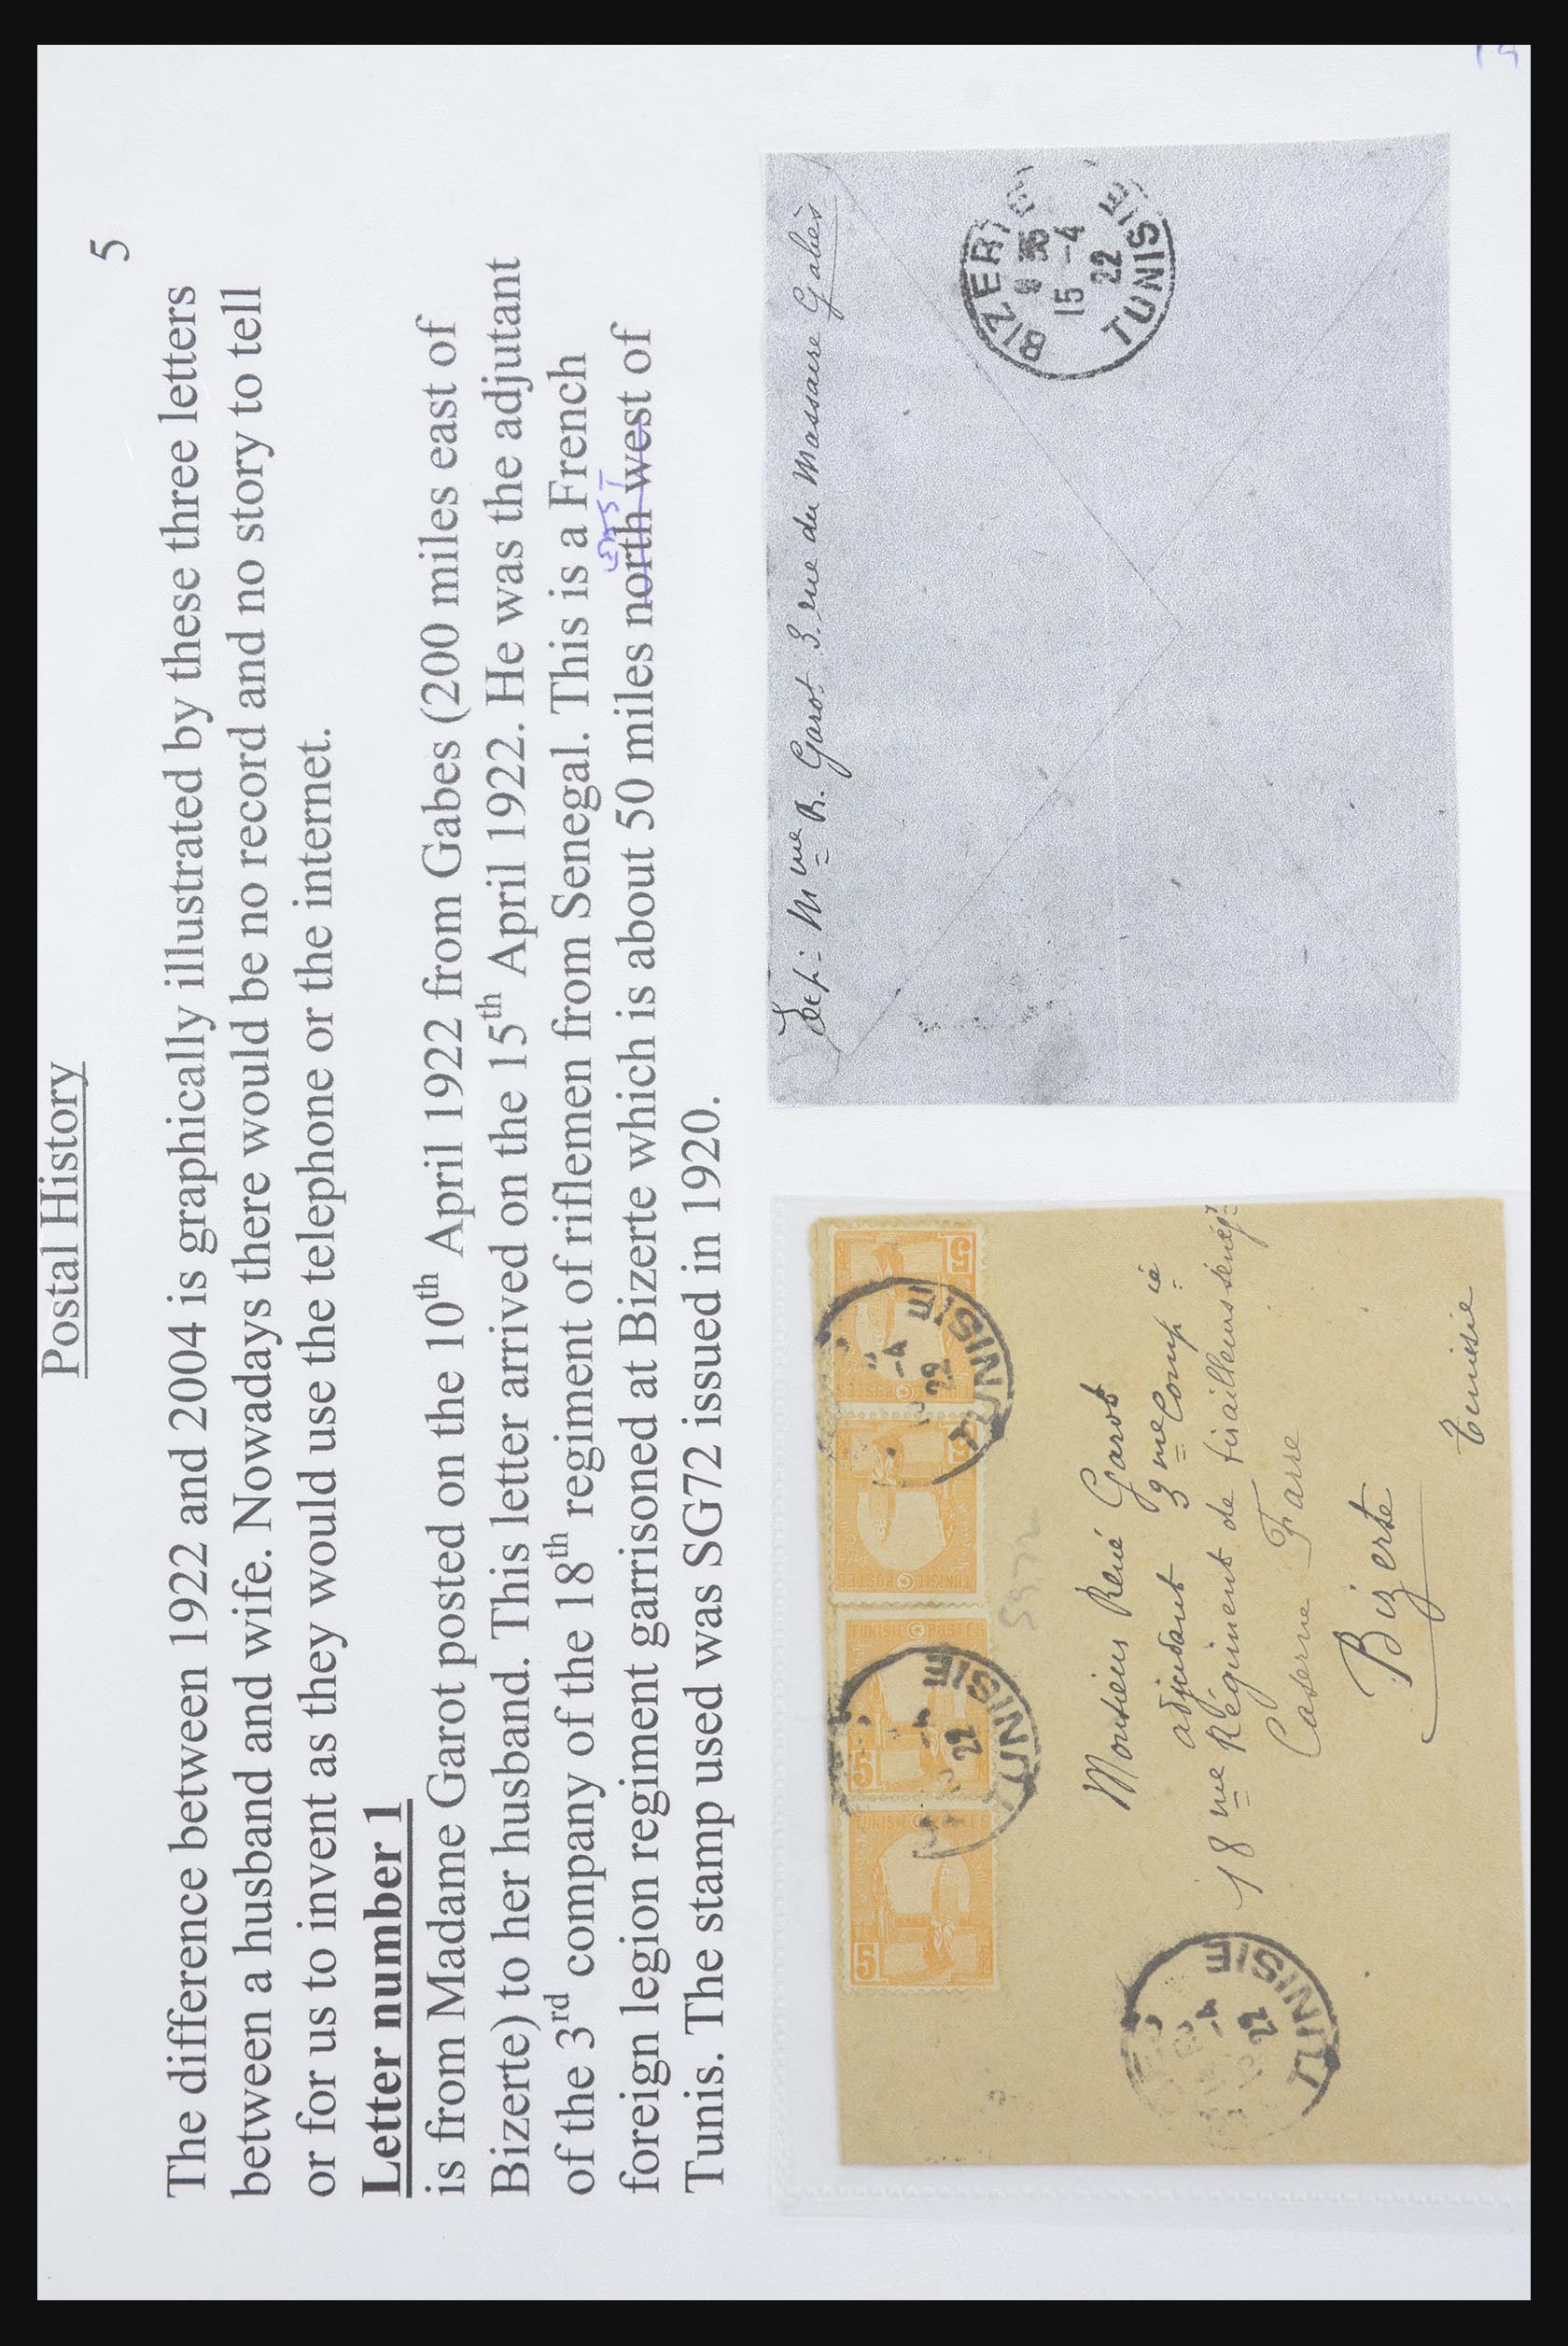 Postal History
5
The difference between 1922 and 2004 is graphically illustrated by these three letters
between a husband and wife. Nowadays there would be no record and no story to tell
or for us to invent as they would use the telephone or the internet.
Letter number 1
is from Madame Garot posted on the 10th April 1922 from Gabes (200 miles east of
Bizerte) to her husband. This letter arrived on the 15th April 1922. He was the adjutant
of the 3rd company of the 18th regiment of riflemen from Senegal. This is a French
EAST
foreign legion regiment garrisoned at Bizerte which is about 50 miles north west of
Tunis. The stamp used was SG72 issued in 1920.
TUNISIE POSTES
5
5
5
5
TUNISIE
-4
22
TUNISIE
-4
22
SG72
Monsieur René Garot
adjudant 3me Compie
18me Régiment de tirailleurs sénég
Caserne Farre
Bizerte
Tunisie
TUNISIE
-4
22
Exp: Mme R. Garot 3. rue du Massacre Gabès
BIZERTE
15 -4
22
TUNISIE